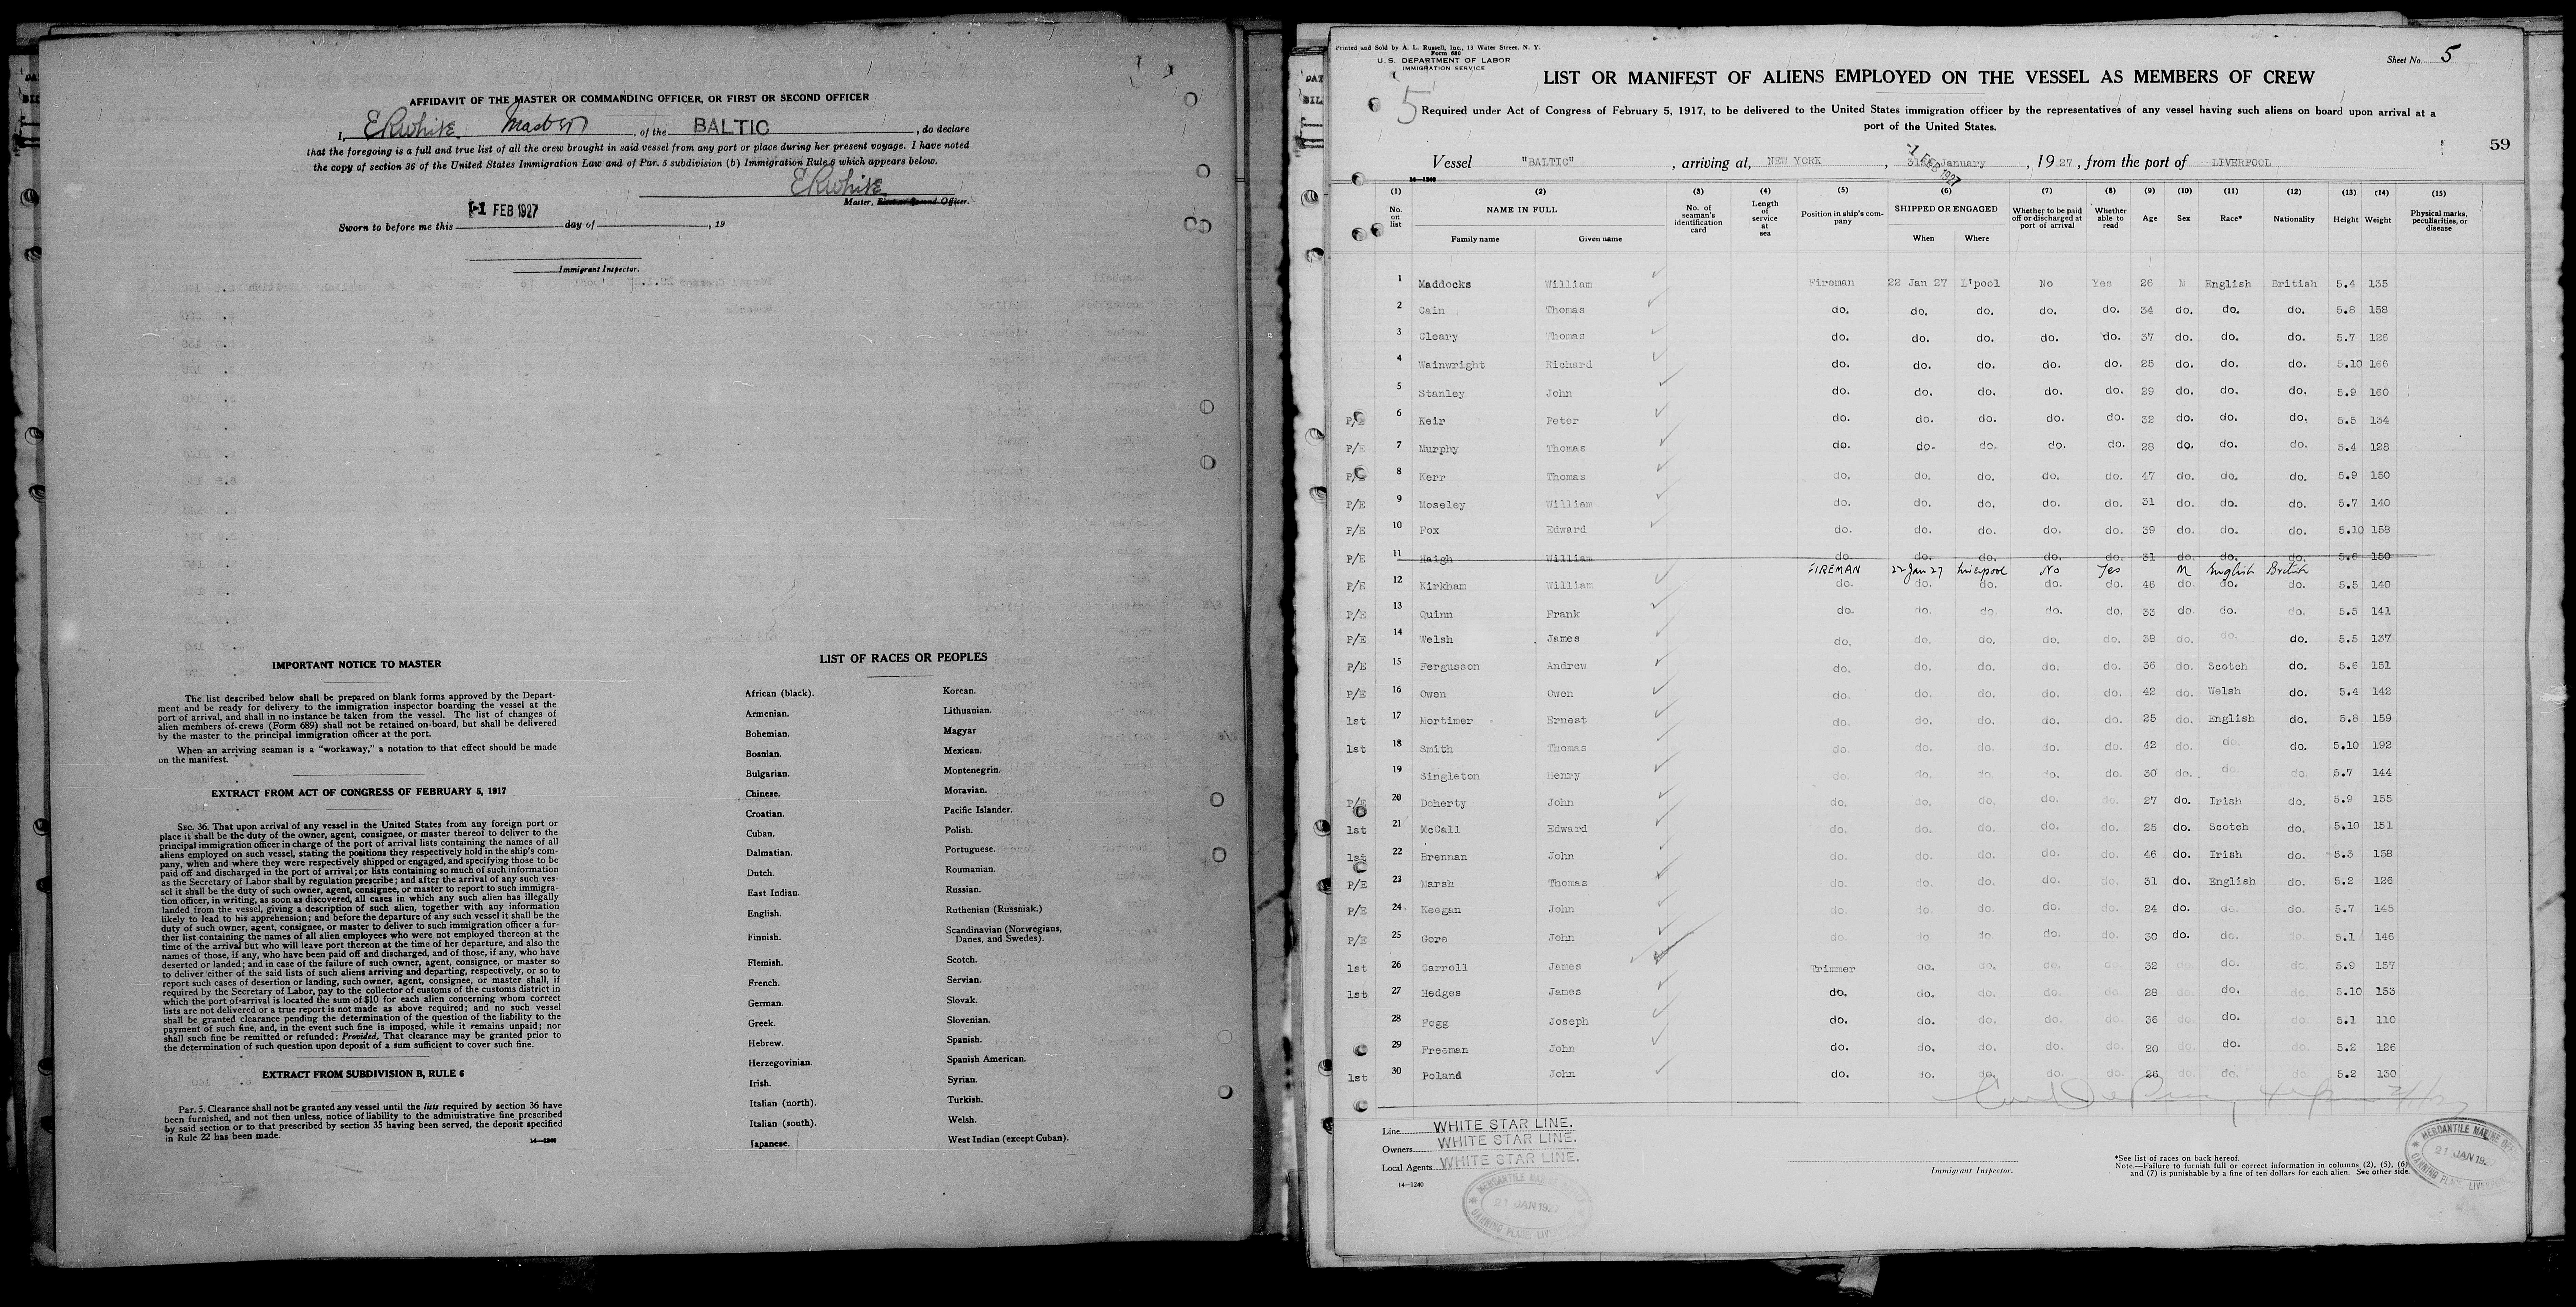 AFFIDAVIT OF THE MASTER OR COMMANDING OFFICER, OR FIRST OR SECOND OFFICER
I, ERWhite Master, of the BALTIC, do declare
that the foregoing is a full and true list of all the crew brought in said vessel from any port or place during her present voyage. I have noted
the copy of section 36 of the United States Immigration Law and of Par. 5 subdivision (b) Immigration Rule 6 which appears below.
ERWhite
Master, First or Second Officer.
-1 FEB 1927
Sworn to before me this day of , 19
Immigrant Inspector.
IMPORTANT NOTICE TO MASTER
The list described below shall be prepared on blank forms approved by the Depart-
ment and be ready for delivery to the immigration inspector boarding the vessel at the
port of arrival, and shall in no instance be taken from the vessel. The list of changes of
alien members of crews (Form 689) shall not be retained on board, but shall be delivered
by the master to the principal immigration officer at the port.
When an arriving seaman is a "workaway," a notation to that effect should be made
on the manifest.
EXTRACT FROM ACT OF CONGRESS OF FEBRUARY 5, 1917
SEC. 36. That upon arrival of any vessel in the United States from any foreign port or
place it shall be the duty of the owner, agent, consignee, or master thereof to deliver to the
principal immigration officer in charge of the port of arrival lists containing the names of all
aliens employed on such vessel, stating the positions they respectively hold in the ship's com-
pany, when and where they were respectively shipped or engaged, and specifying those to be
paid off and discharged in the port of arrival; or lists containing so much of such information
as the Secretary of Labor shall by regulation prescribe; and after the arrival of any such ves-
sel it shall be the duty of such owner, agent, consignee, or master to report to such immigra-
tion officer, in writing, as soon as discovered, all cases in which any such alien has illegally
landed from the vessel, giving a description of such alien, together with any information
likely to lead to his apprehension; and before the departure of any such vessel it shall be the
duty of such owner, agent, consignee, or master to deliver to such immigration officer a fur-
ther list containing the names of all alien employees who were not employed thereon at the
time of the arrival but who will leave port thereon at the time of her departure, and also the
names of those, if any, who have been paid off and discharged, and of those, if any, who have
deserted or landed; and in case of the failure of such owner, agent, consignee, or master so
to deliver either of the said lists of such aliens arriving and departing, respectively, or so to
report such cases of desertion or landing, such owner, agent, consignee, or master shall, if
required by the Secretary of Labor, pay to the collector of customs of the customs district in
which the port of arrival is located the sum of $10 for each alien concerning whom correct
lists are not delivered or a true report is not made as above required; and no such vessel
shall be granted clearance pending the determination of the question of the liability to the
payment of such fine, and, in the event such fine is imposed, while it remains unpaid; nor
shall such fine be remitted or refunded: Provided, That clearance may be granted prior to
the determination of such question upon deposit of a sum sufficient to cover such fine.
EXTRACT FROM SUBDIVISION B, RULE 6
Par. 5. Clearance shall not be granted any vessel until the lists required by section 36 have
been furnished, and not then unless, notice of liability to the administrative fine prescribed
by said section or to that prescribed by section 35 having been served, the deposit specified
in Rule 22 has been made.
14—1240
LIST OF RACES OR PEOPLES
African (black).
Armenian.
Bohemian.
Bosnian.
Bulgarian.
Chinese.
Croatian.
Cuban.
Dalmatian.
Dutch.
East Indian.
English.
Finnish.
Flemish.
French.
German.
Greek.
Hebrew.
Herzegovinian.
Irish.
Italian (north).
Italian (south).
Japanese.
Korean.
Lithuanian.
Magyar
Mexican.
Montenegrin.
Moravian.
Pacific Islander.
Polish.
Portuguese.
Roumanian.
Russian.
Ruthenian (Russniak.)
Scandinavian (Norwegians,
Danes, and Swedes).
Scotch.
Servian.
Slovak.
Slovenian.
Spanish.
Spanish American.
Syrian.
Turkish.
Welsh.
West Indian (except Cuban).
Printed and Sold by A. L. Russell, Inc., 13 Water Street, N. Y.
Form 680
U. S. DEPARTMENT OF LABOR
IMMIGRATION SERVICE
Sheet No. 5
LIST OR MANIFEST OF ALIENS EMPLOYED ON THE VESSEL AS MEMBERS OF CREW
5
Required under Act of Congress of February 5, 1917, to be delivered to the United States immigration officer by the representatives of any vessel having such aliens on board upon arrival at a
port of the United States.
59
Vessel "BALTIC", arriving at, NEW YORK, 31st January, 1927, from the port of LIVERPOOL
-1 FEB 1927
14—1240
(1) (2) (3) (4) (5) (6) (7) (8) (9) (10) (11) (12) (13) (14) (15)
No. on list NAME IN FULL Family name Given name No. of seaman's identification card Length of service at sea Position in ship's company SHIPPED OR ENGAGED When Where Whether to be paid off or discharged at port of arrival Whether able to read Age Sex Race* Nationality Height Weight Physical marks, peculiarities, or disease
1 Maddocks William Fireman 22 Jan 27 L'pool No Yes 26 M English British 5.4 135
2 Cain Thomas do. do. do. do. do. 34 do. do. do. 5.8 158
3 Cleary Thomas do. do. do. do. do. 37 do. do. do. 5.7 126
4 Wainwright Richard do. do. do. do. do. 25 do. do. do. 5.10 166
5 Stanley John do. do. do. do. do. 29 do. do. do. 5.9 160
P/E 6 Keir Peter do. do. do. do. do. 32 do. do. do. 5.5 134
P/E 7 Murphy Thomas do. do. do. do. do. 28 do. do. do. 5.4 128
P/E 8 Kerr Thomas do. do. do. do. do. 47 do. do. do. 5.9 150
P/E 9 Moseley William do. do. do. do. do. 31 do. do. do. 5.7 140
P/E 10 Fox Edward do. do. do. do. do. 39 do. do. do. 5.10 158
P/E 11 Haigh William do. do. do. do. do. 31 do. do. do. 5.6 150
FIREMAN 22 Jan 27 Liverpool No Yes M English British
P/E 12 Kirkham William do. do. do. do. do. 46 do. do. do. 5.5 140
P/E 13 Quinn Frank do. do. do. do. do. 33 do. do. do. 5.5 141
P/E 14 Welsh James do. do. do. do. do. 38 do. do. do. 5.5 137
P/E 15 Fergusson Andrew do. do. do. do. do. 36 do. Scotch do. 5.6 151
P/E 16 Owen Owen do. do. do. do. do. 42 do. Welsh do. 5.4 142
1st 17 Mortimer Ernest do. do. do. do. do. 25 do. English do. 5.8 159
1st 18 Smith Thomas do. do. do. do. do. 42 do. do. do. 5.10 192
19 Singleton Henry do. do. do. do. do. 30 do. do. do. 5.7 144
P/E 20 Doherty John do. do. do. do. do. 27 do. Irish do. 5.9 155
1st 21 McCall Edward do. do. do. do. do. 25 do. Scotch do. 5.10 151
1st 22 Brennan John do. do. do. do. do. 46 do. Irish do. 5.3 158
P/E 23 Marsh Thomas do. do. do. do. do. 31 do. English do. 5.2 126
P/E 24 Keegan John do. do. do. do. do. 24 do. do. do. 5.7 145
P/E 25 Gore John do. do. do. do. do. 30 do. do. do. 5.1 146
1st 26 Carroll James Trimmer do. do. do. do. 32 do. do. do. 5.9 157
1st 27 Hedges James do. do. do. do. do. 28 do. do. do. 5.10 153
28 Fogg Joseph do. do. do. do. do. 36 do. do. do. 5.1 110
29 Freeman John do. do. do. do. do. 20 do. do. do. 5.2 126
1st 30 Poland John do. do. do. do. do. 26 do. do. do. 5.2 130
Line WHITE STAR LINE.
Owners WHITE STAR LINE.
Local Agents WHITE STAR LINE.
14—1240
Immigrant Inspector.
*See list of races on back hereof.
Note.—Failure to furnish full or correct information in columns (2), (5), (6),
and (7) is punishable by a fine of ten dollars for each alien. See other side.
MERCANTILE MARINE OFFICE
21 JAN 19
CANNING PLACE, LIVERPOOL
MERCANTILE MARINE OFFICE
21 JAN 19
CANNING PLACE, LIVERPOOL